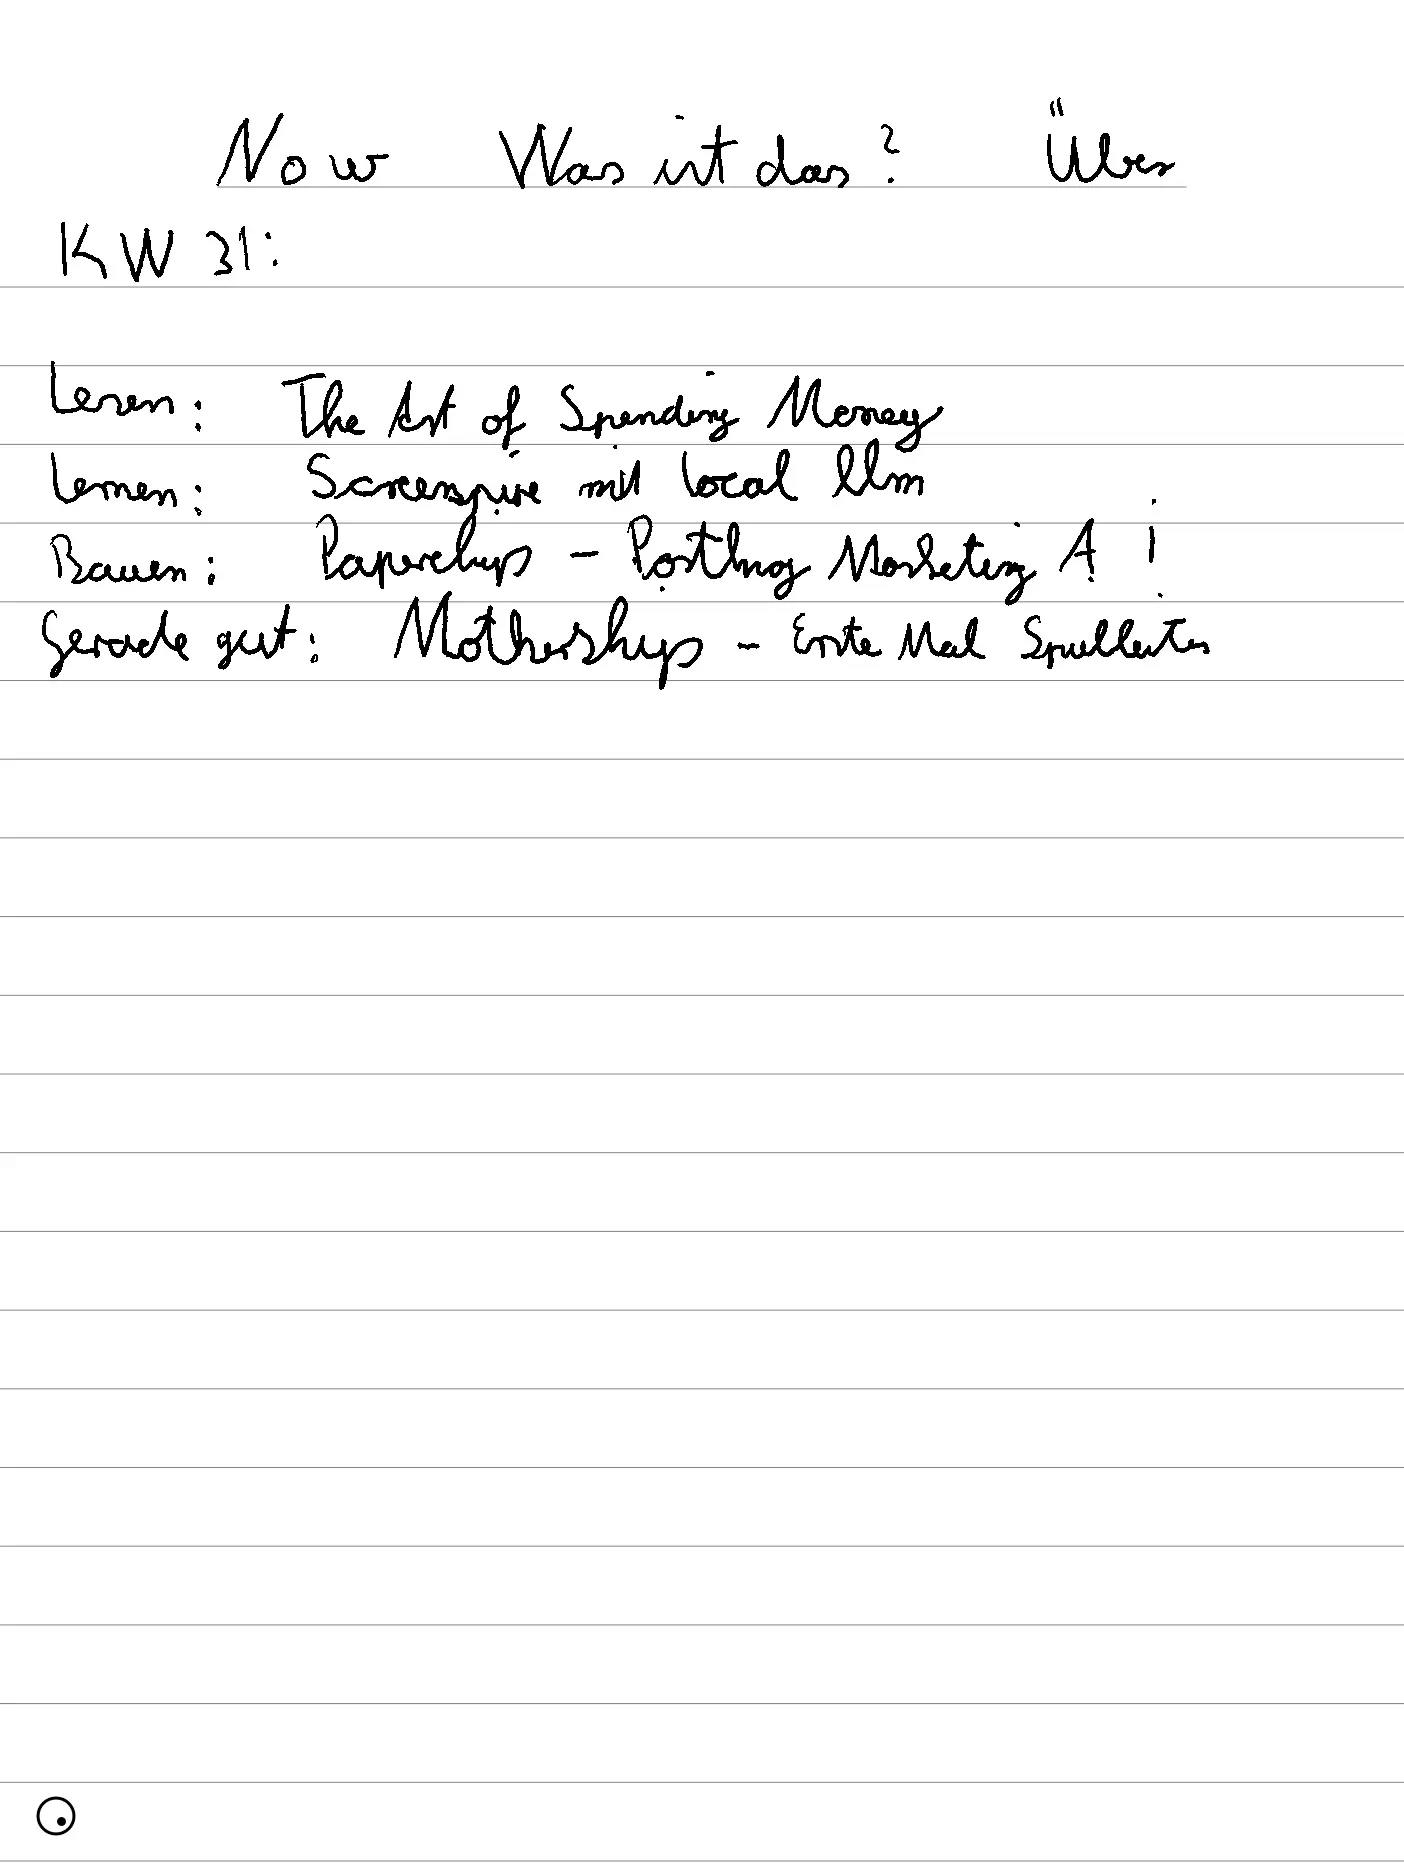 Now Was ist das? Über
KW 31:
Lesen: The Art of Spending Money
Lernen: Screenpipe mit local llm
Bauen: Paperchips - Posthog Marketing A
Gerade gut: Mothership - Erste Mal Spielleiter